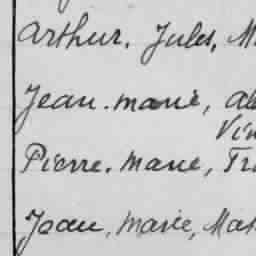 Arthur, Jules, M
Jean-marie, al
Vin
Pierre, Marie, Tr
Jean, Marie, Mat